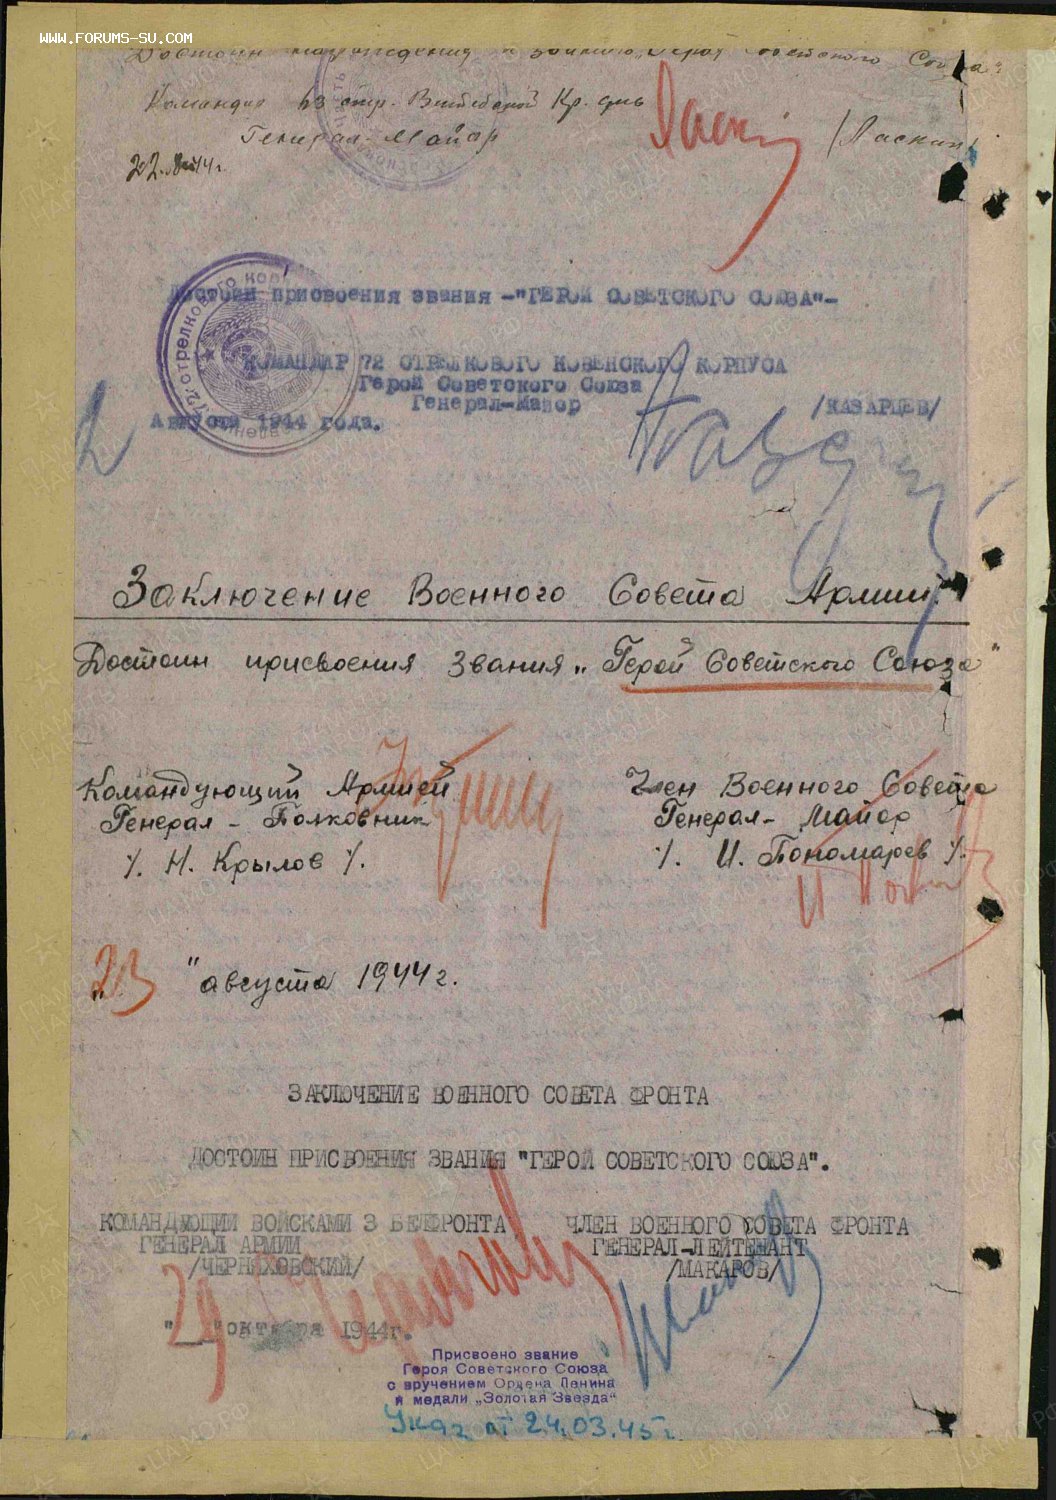 WWW.FORUMS-SU.COM
Достоин награждения званием „Герой Советского Союза"
Командир 63 стр. Витебской Кр. див
Генерал-Майор /Ласкин/
22. 44 г.
Достоин присвоения звания -"ГЕРОЙ СОВЕТСКОГО СОЮЗА"-
КОМАНДИР 72 СТРЕЛКОВОГО КОВЕНСКОГО КОРПУСА
Герой Советского Союза
Генерал-Майор /КАЗАРЦЕВ/
Августа 1944 года.
72 стрелкового кор
Заключение Военного Совета Армии.
Достоин присвоения звания „Герой Советского Союза"
Командующий Армией Член Военного Совета
Генерал-Полковник Генерал-Майор
/. Н. Крылов /. /. И. Пономарев /.
„23" августа 1944 г.
ЗАКЛЮЧЕНИЕ ВОЕННОГО СОВЕТА ФРОНТА
ДОСТОИН ПРИСВОЕНИЯ ЗВАНИЯ "ГЕРОЙ СОВЕТСКОГО СОЮЗА".
КОМАНДУЮЩИЙ ВОЙСКАМИ 3 БЕЛФРОНТА ЧЛЕН ВОЕННОГО СОВЕТА ФРОНТА
ГЕНЕРАЛ АРМИИ ГЕНЕРАЛ-ЛЕЙТЕНАНТ
/ЧЕРНЯХОВСКИЙ/ /МАКАРОВ/
"29" октября 1944г.
Присвоено звание
Героя Советского Союза
с вручением Ордена Ленина
и медали „Золотая Звезда"
Указ от 24.03.45 г.